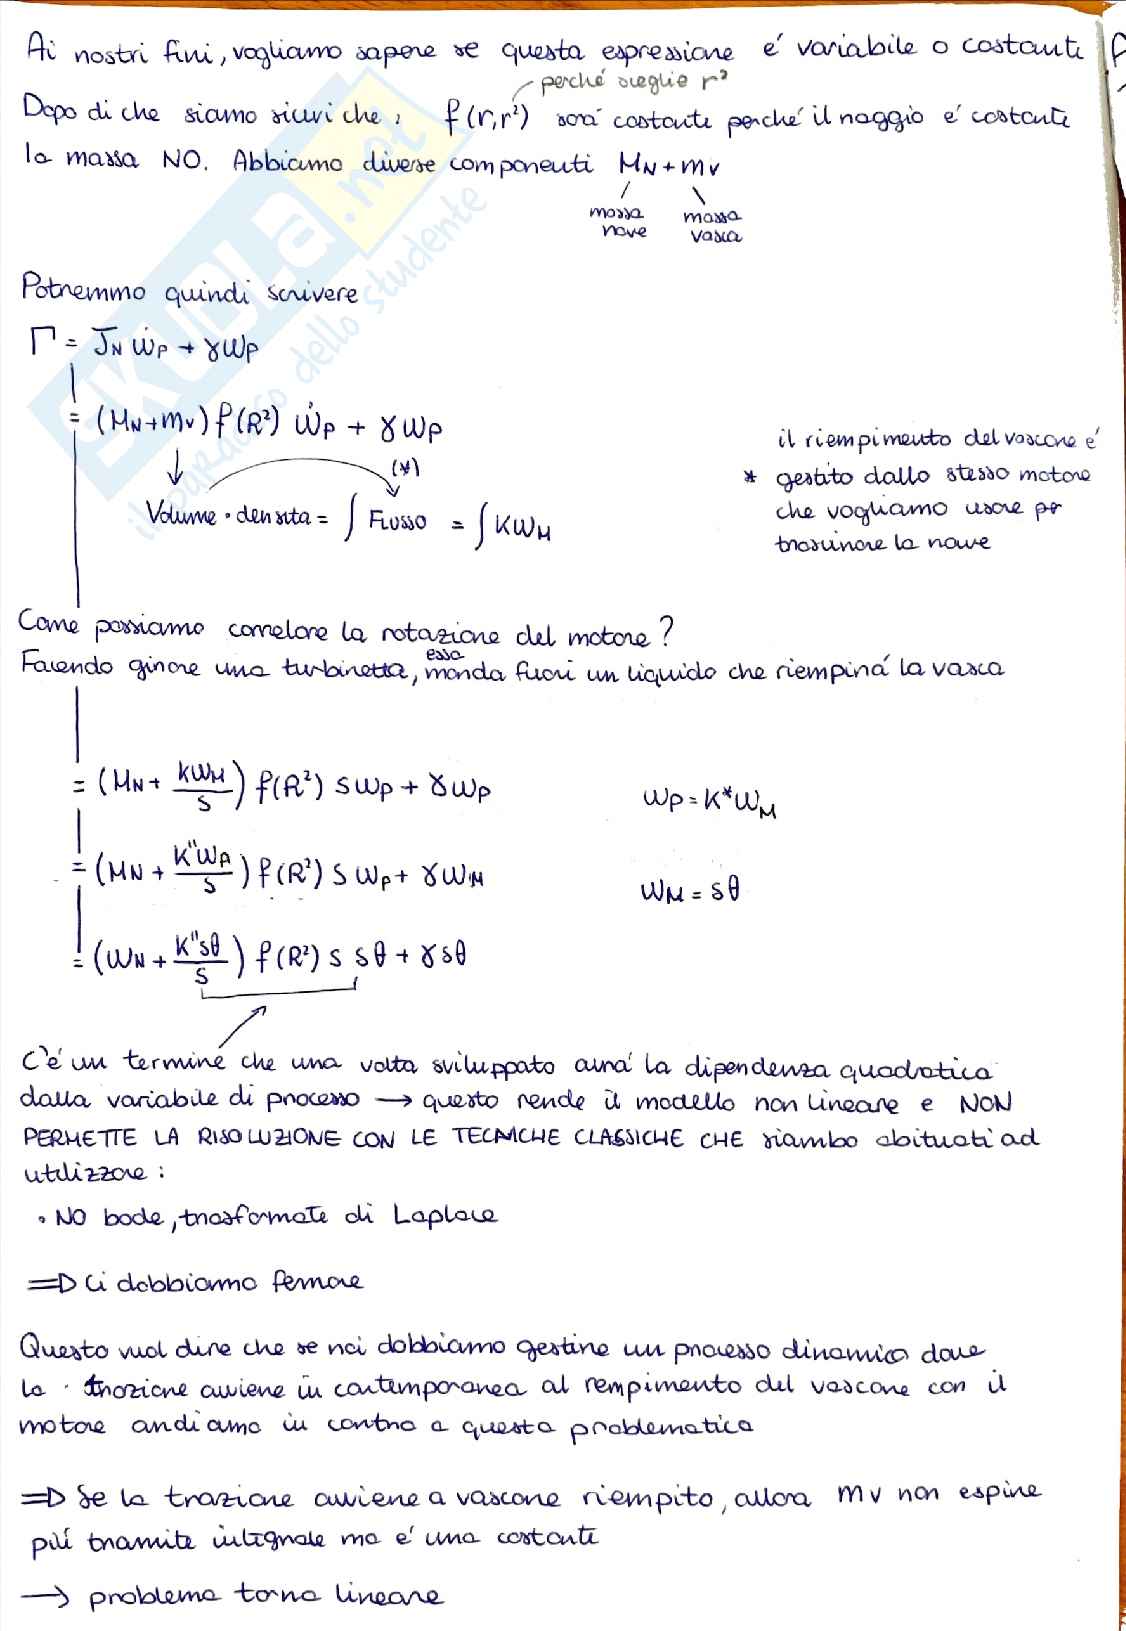 Ai nostri fini, vogliamo sapere se questa espressione é variabile o costante
perché sceglie r²
Dopo di che siamo sicuri che: f(r,r²) sará costante perché il raggio é costante
la massa NO. Abbiamo diverse componenti M_N + m_V
massa nave massa vasca
Potremmo quindi scrivere
Γ = J_N ω̇_P + γω_P
= (M_N + m_V) f(R²) ω̇_P + γω_P
(*)
Volume · densita = ∫ Flusso = ∫ Kω_M
il riempimento del vascone é
* gestito dallo stesso motore
che vogliamo usare per
trascinare la nave
Come possiamo correlare la rotazione del motore?
Facendo girare una turbinetta, essa manda fuori un liquido che riempirá la vasca
= (M_N + kω_M/s) f(R²) s ω_P + γω_P
ω_P = K*ω_M
= (M_N + K"ω_P/s) f(R²) s ω_P + γω_M
ω_M = sθ
= (ω_N + K"sθ/s) f(R²) s sθ + γsθ
C'é un termine che una volta sviluppato avrá la dipendenza quadratica
dalla variabile di processo → questo rende il modello non lineare e NON
PERMETTE LA RISOLUZIONE CON LE TECNICHE CLASSICHE CHE siambo abituati ad
utilizzare:
• NO bode, trasformate di Laplace
⇒ Ci dobbiamo fermare
Questo vuol dire che se noi dobbiamo gestire un processo dinamico dove
la trazione avviene in contemporanea al rempimento del vascone con il
motore andiamo in contro a questa problematica
⇒ Se la trazione avviene a vascone riempito, allora m_V non espine
piú tramite integrale ma é una costante
→ problema torna lineare
SKUOLA.net
il paradiso dello studente